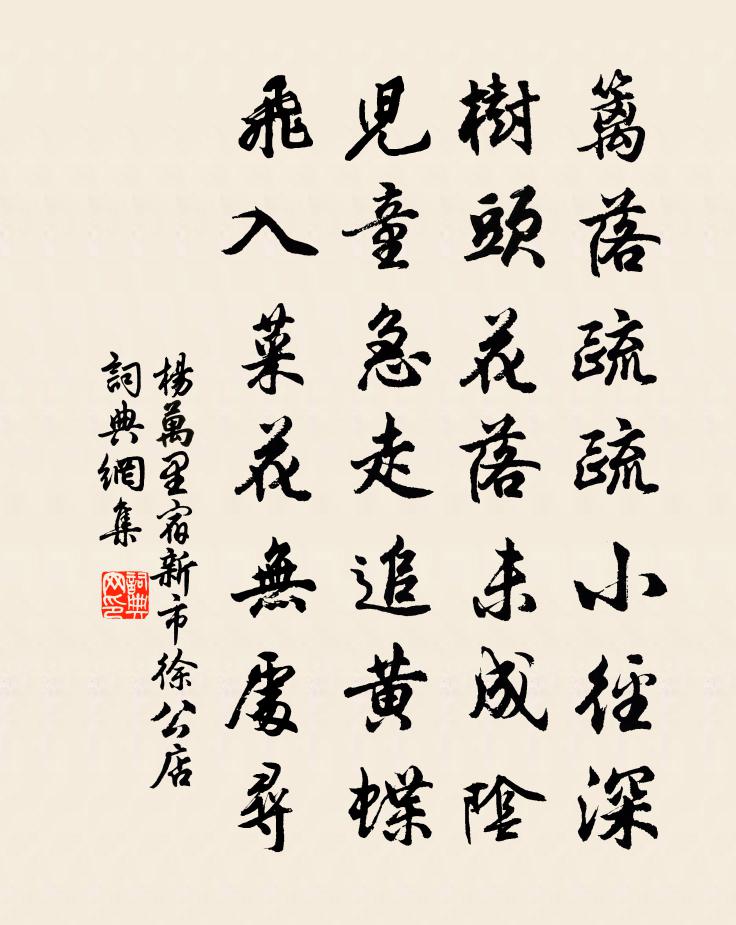 籬落疏疏小徑深
樹頭花落未成陰
兒童急走追黃蝶
飛入菜花無處尋
楊萬里宿新市徐公店
詞典網集
詞典网印